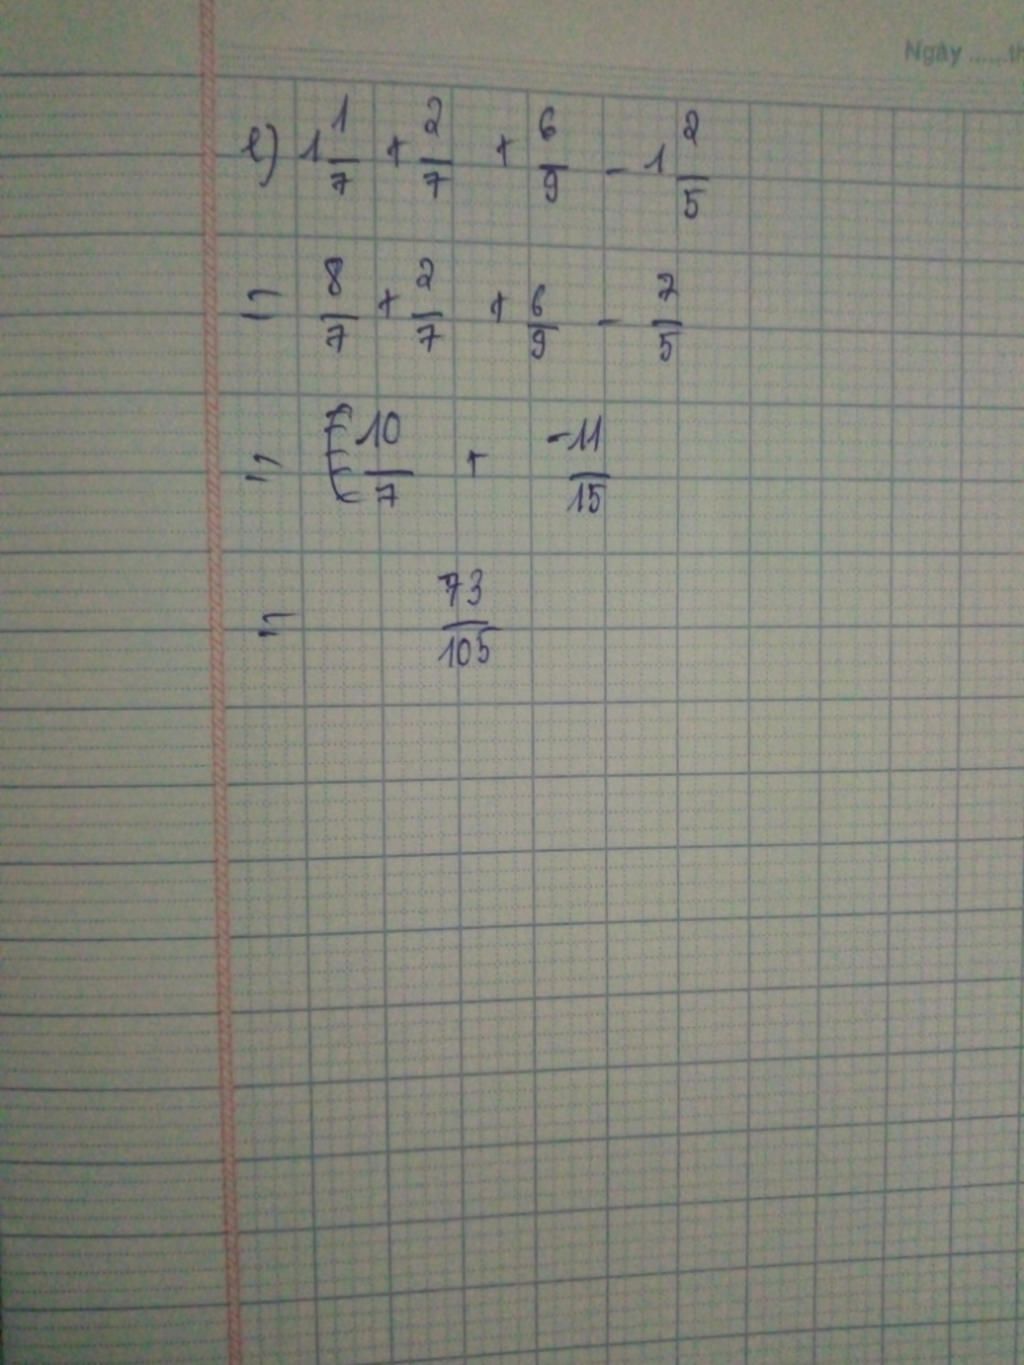 Ngày ......th
e) 1 1/7 + 2/7 + 6/9 - 1 2/5
= 8/7 + 2/7 + 6/9 - 7/5
= 10/7 + -11/15
= 73/105